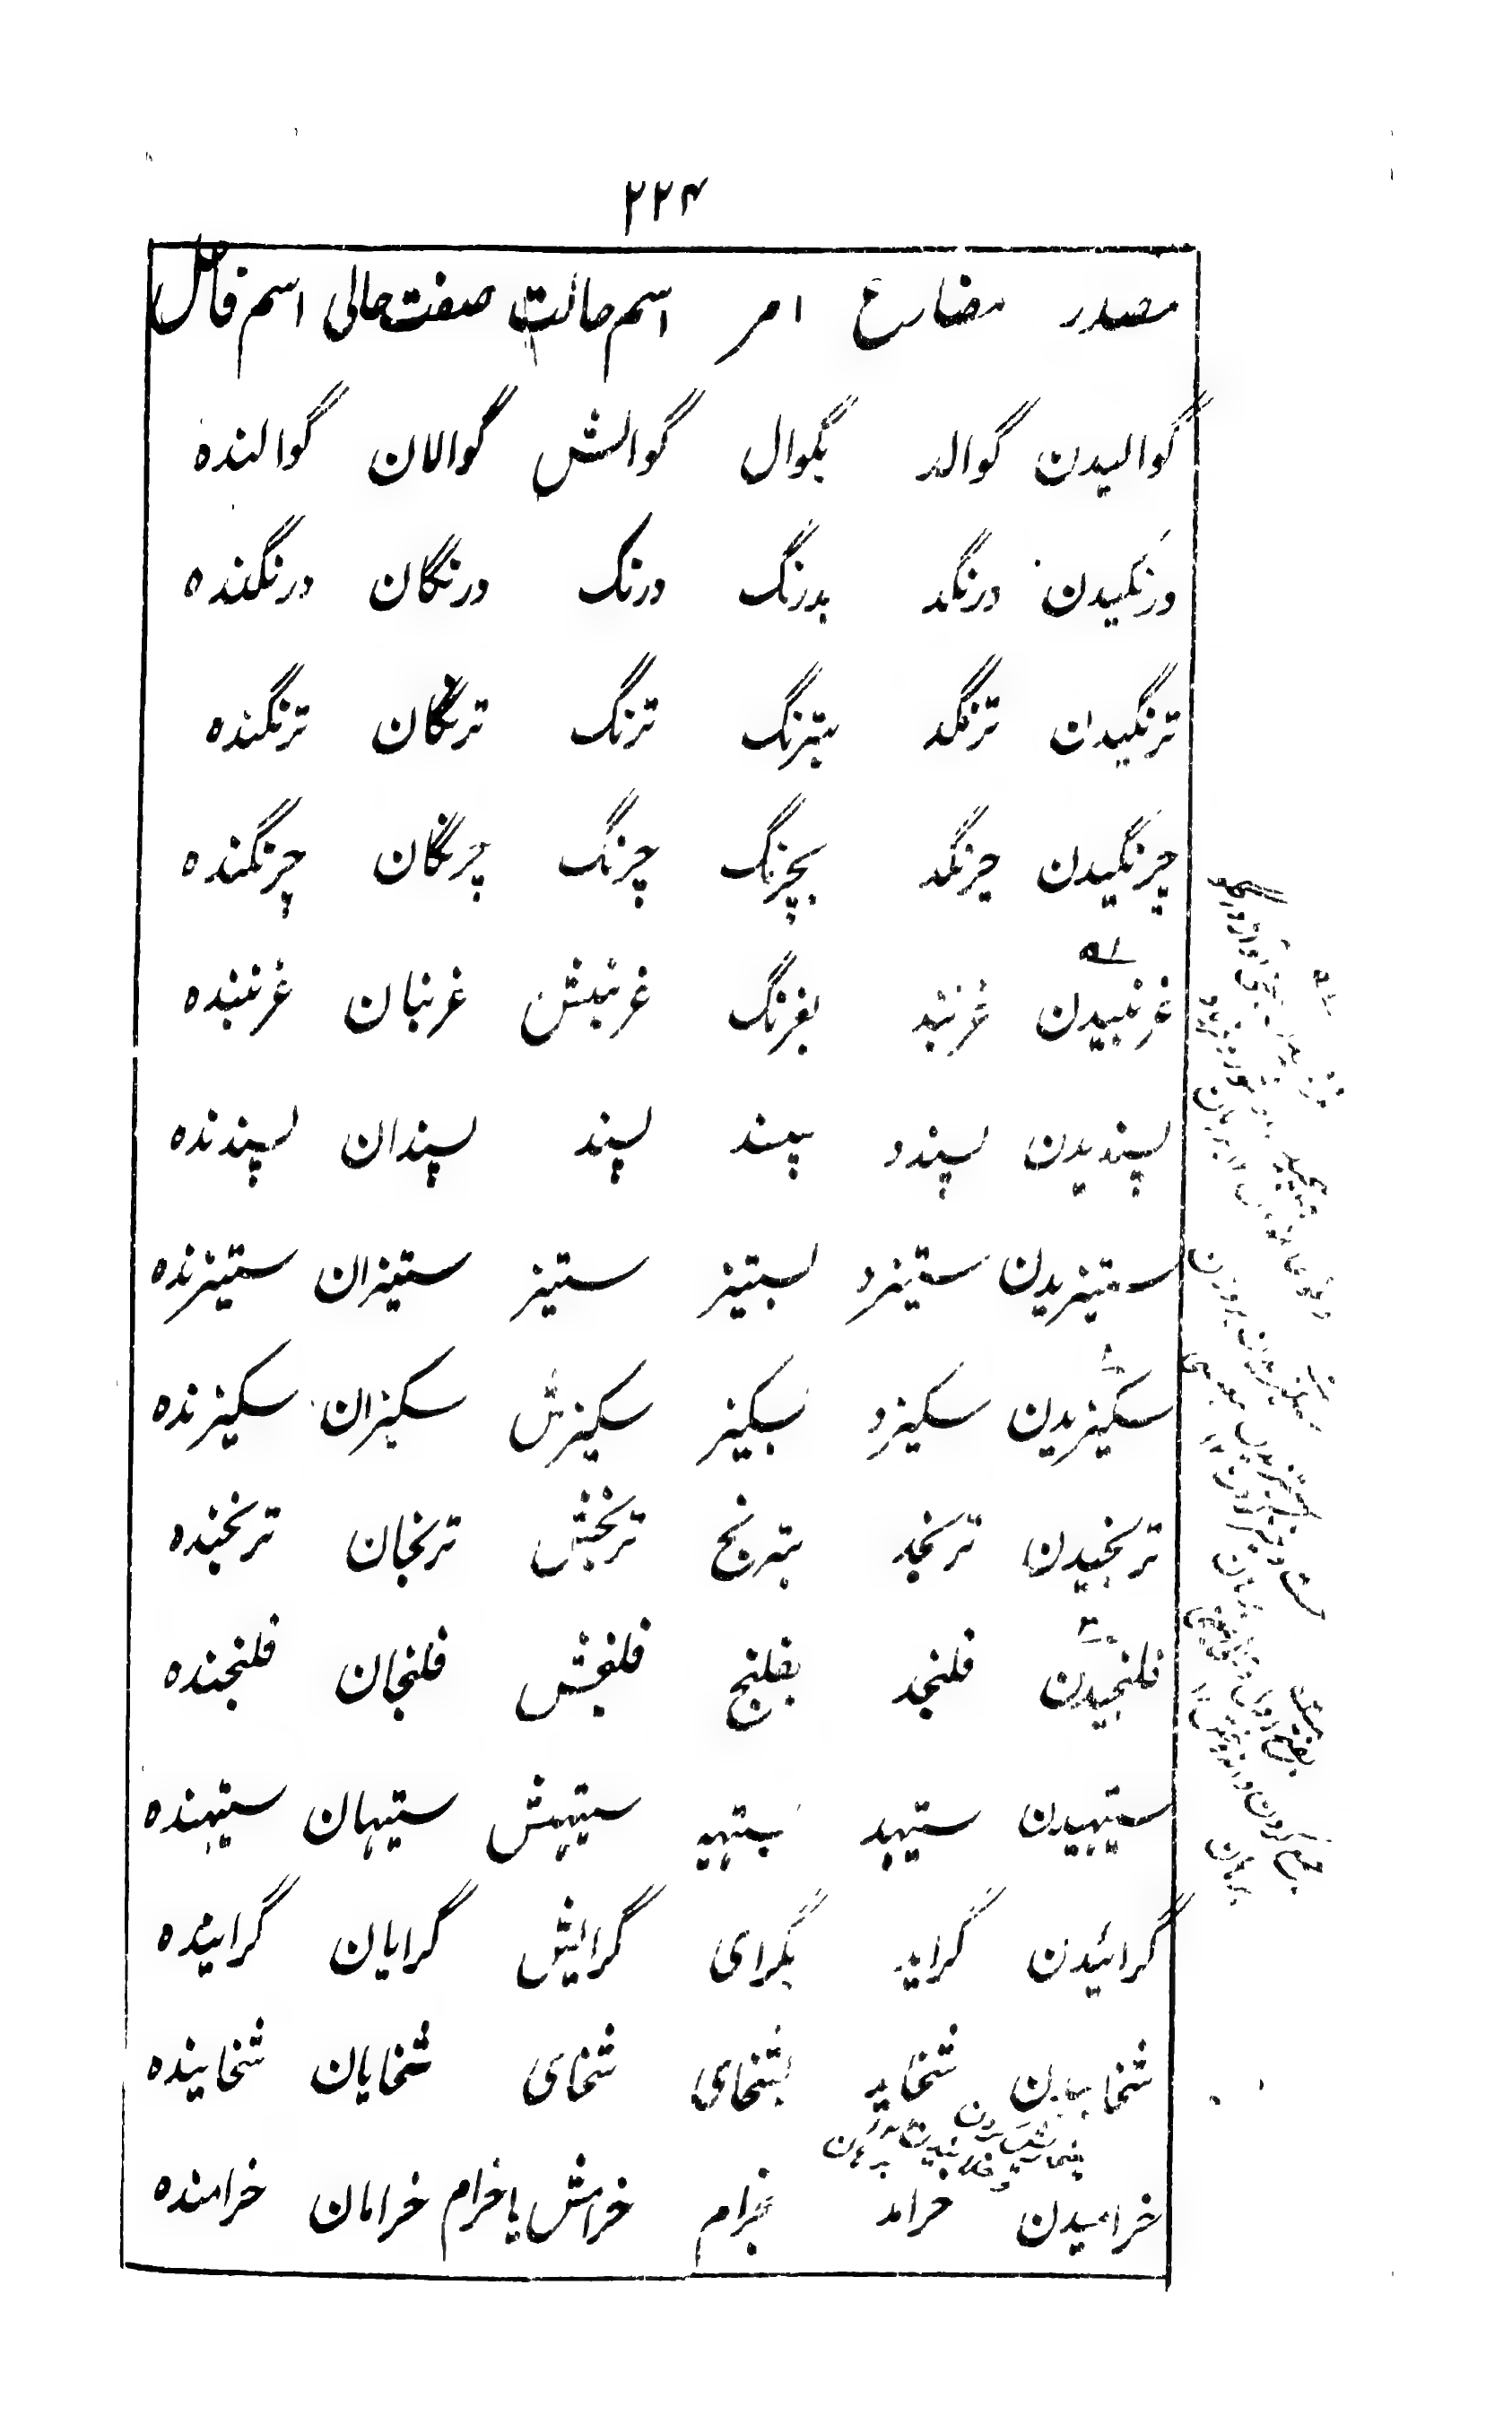 ۲۲۴
مصدر مضارع امر اسم حالت صفت حالی اسم فاعل
گوالیدن گوالد بگوال گوالش گوالان گوالنده
درنگیدن درنگد بدرنگ درنگ درنگان درنگنده
ترنگیدن ترنگد بترنگ ترنگ ترنگان ترنگنده
چرنگیدن چرنگد بچرنگ چرنگ چرنگان چرنگنده
غرنبیدن غرنبد بغرنگ غرنبش غرنبان غرنبنده
پسندیدن پسندد بپسند پسند پسندان پسندنده
ستیزیدن ستیزد بستیز ستیز ستیزان ستیزنده
سکیزیدن سکیزد بسکیز سکیزش سکیزان سکیزنده
ترنجیدن ترنجد بترنج ترنجش ترنجان ترنجنده
فلنجیدن فلنجد بفلنج فلنجش فلنجان فلنجنده
ستیهیدن ستیهد بستهید ستیهش ستیهان ستیهنده
گرائیدن گراید بگرای گرایش گرایان گراینده
شخاییدن شخاید بشخای شخای شخایان شخاینده
خرامیدن خرامد بخرام خرامش یا خرام خرامان خرامنده